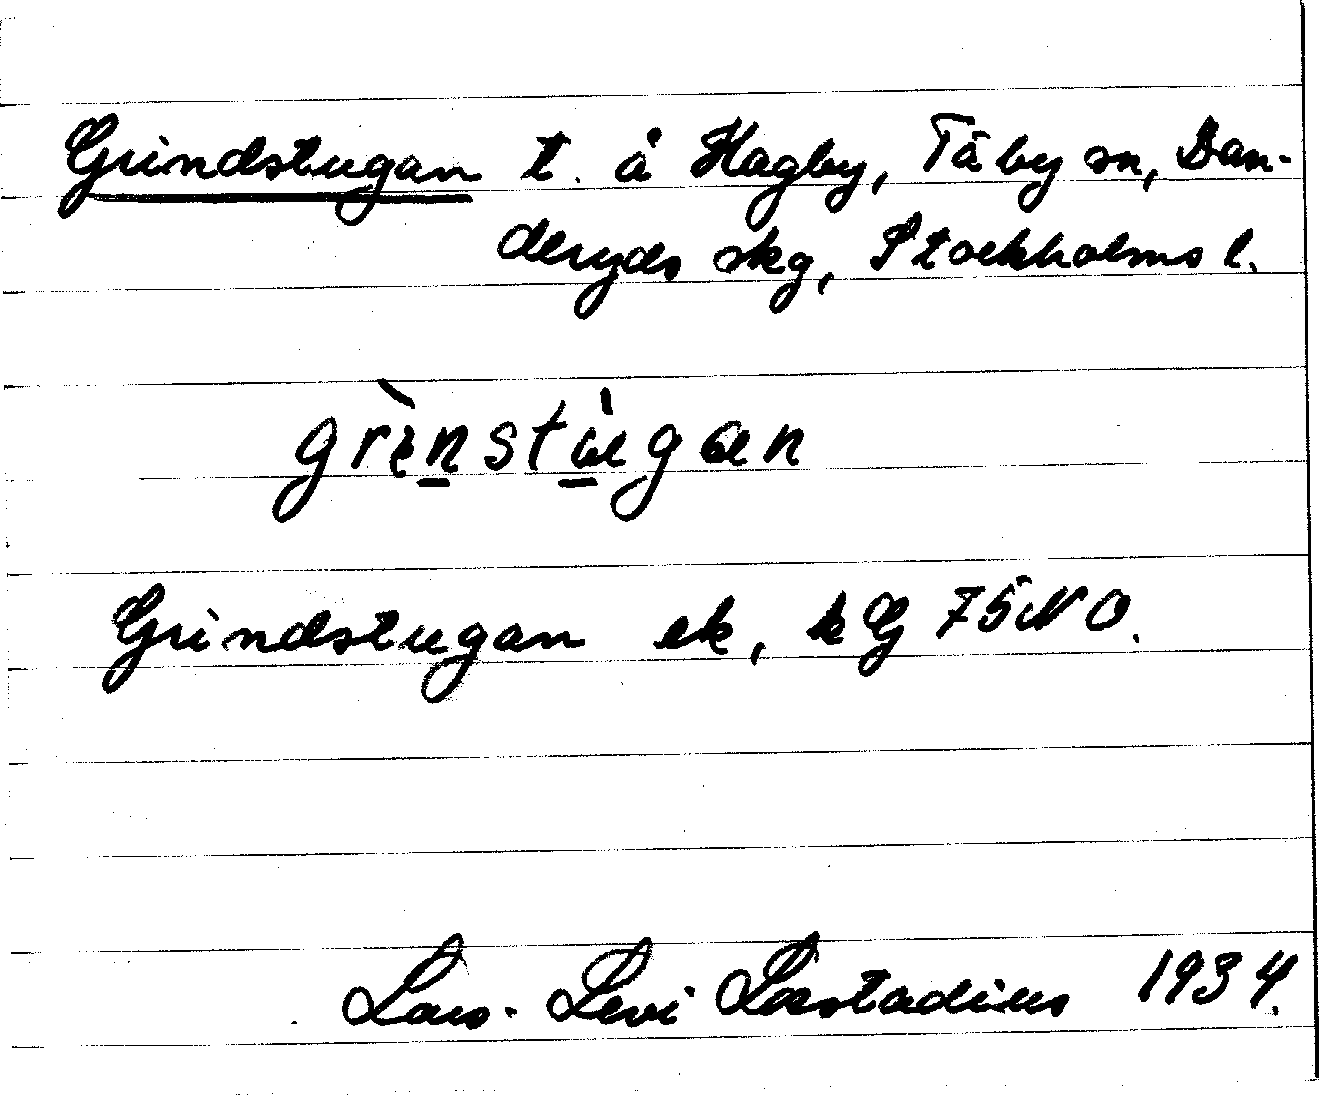 Grindstugan t. å Hagby, Täby sn, Dan-
deryds skg, Stockholms l.
grìnstùgan
Grindstugan ek, kG 75 NO.
Lars-Levi Læstadius 1934.